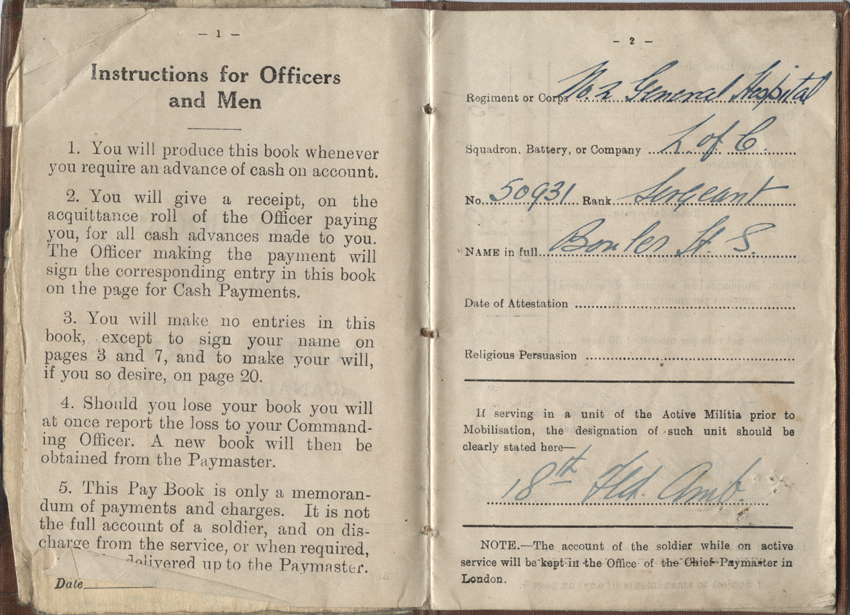 – 1 –
Instructions for Officers
and Men
1. You will produce this book whenever
you require an advance of cash on account.
2. You will give a receipt, on the
acquittance roll of the Officer paying
you, for all cash advances made to you.
The Officer making the payment will
sign the corresponding entry in this book
on the page for Cash Payments.
3. You will make no entries in this
book, except to sign your name on
pages 3 and 7, and to make your will,
if you so desire, on page 20.
4. Should you lose your book you will
at once report the loss to your Command-
ing Officer. A new book will then be
obtained from the Paymaster.
5. This Pay Book is only a memoran-
dum of payments and charges. It is not
the full account of a soldier, and on dis-
charge from the service, or when required,
delivered up to the Paymaster.
Date
– 2 –
Regiment or Corps No. 2 General Hospital
Squadron, Battery, or Company L of C.
No. 50931 Rank Sergeant
NAME in full S.
Date of Attestation
Religious Persuasion
If serving in a unit of the Active Militia prior to
Mobilisation, the designation of such unit should be
clearly stated here—
18th Fld. Amb.
NOTE.—The account of the soldier while on active
service will be kept in the Office of the Chief Paymaster in
London.